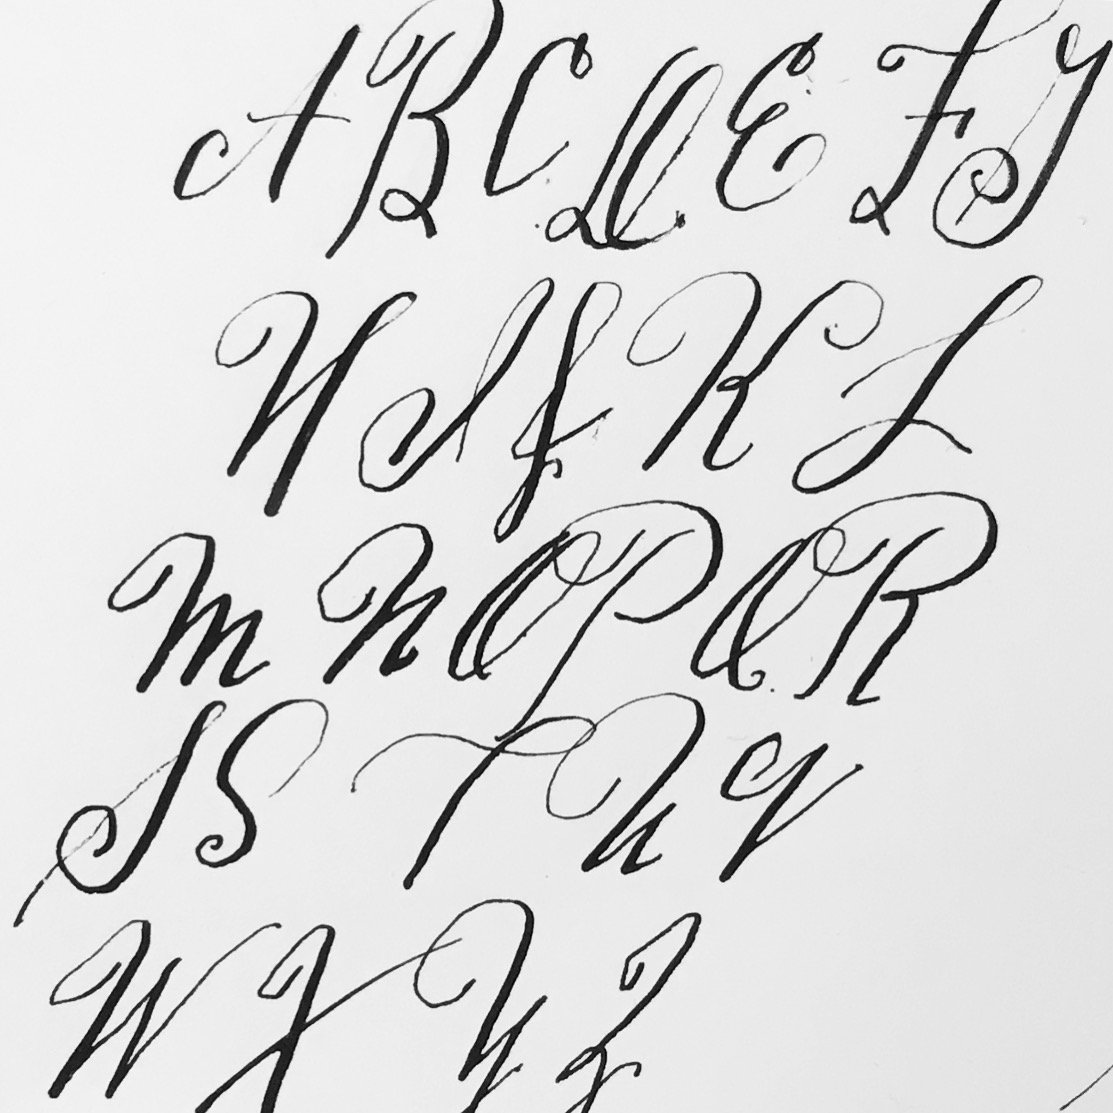 A B C D E F G
H I J K L
M N O P Q R
S S T U V
W X Y Z